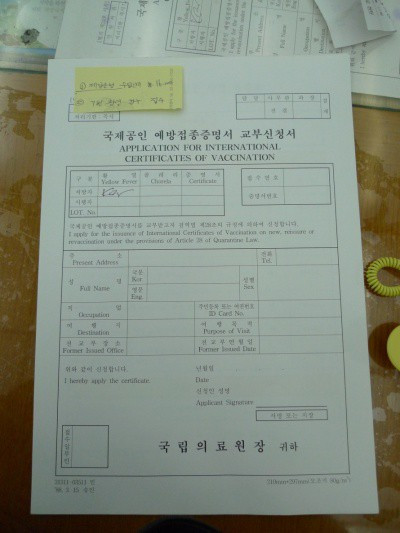 처리기간 : 즉시
국제공인 예방접종증명서 교부신청서
APPLICATION FOR INTERNATIONAL
CERTIFICATES OF VACCINATION
구 분 황 열 Yellow Fever 콜 레 라 Cholera 증 명 서 Certificate
접 수 번 호
처방자
시행자
증명서번호
LOT. No
국제공인 예방접종증명서를 교부받고자 검역법 제28조의 규정에 의하여 신청합니다.
I apply for the issuance of International Certificates of Vaccination on new, reissue or
revaccination under the provisions of Article 28 of Quarantine Law.
주 소 Present Address
전화 Tel.
성 명 Full Name
국문 Kor.
영문 Eng.
성별 Sex
직 업 Occupation
주민등록 또는 여권번호 ID Card No.
여 행 지 Destination
여 행 목 적 Purpose of Visit
전 교 부 장 소 Former Issued Office
전 교 부 년 월 일 Former Issued Date
위와 같이 신청합니다.
년월일
I hereby apply the certificate
Date
신청인 성명
Applicant Signature
서명 또는 지장
접수일부인
국 립 의 료 원 장 귀하